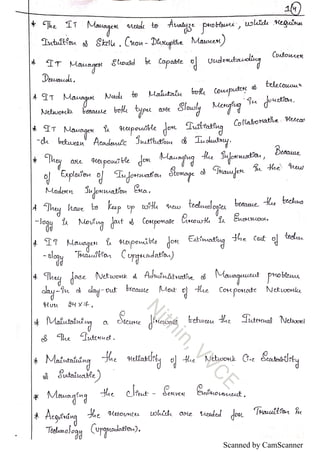 1(9)
* The IT Manager needs to Analyze problems, which requires
Intuition & Skills. (non-Disruptive Manner)
* IT Manager Should be Capable of Understanding Customer
Demands.
* IT Manager Needs to Maintain both Computer & telecomm
Networks because both type are Slowly Merging in function.
* IT Manager is responsible for Initiating Collaborative
between Academic Institution & Industry.
* They are responsible for Managing the Information, Because
of Explosion of Information Storage & Transfer in the New
Modern Information Era.
* They have to keep up with new technologies because the techno
-logy is Moving fast & Corporate Growth is Enormous.
* IT Manager is responsible for Estimating the Cost of techn
-ology Transition (upgradation).
* They face Network & Administrative & Management problems
day-in & day-out because Most of the Corporate Networks
Run 24x7.
* Maintaining a Secure between the Internal Network
& the Internet.
* Maintaining the reliability of the Network (i.e Scalability
& Sustainable)
* Managing the Client - Server Environment.
* Acquiring the resources which are needed for Transition in
Technology (upgradation).
Nithin, VVCE
Scanned by CamScanner